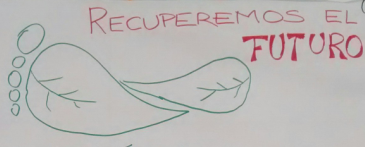 RECUPEREMOS EL
FUTURO